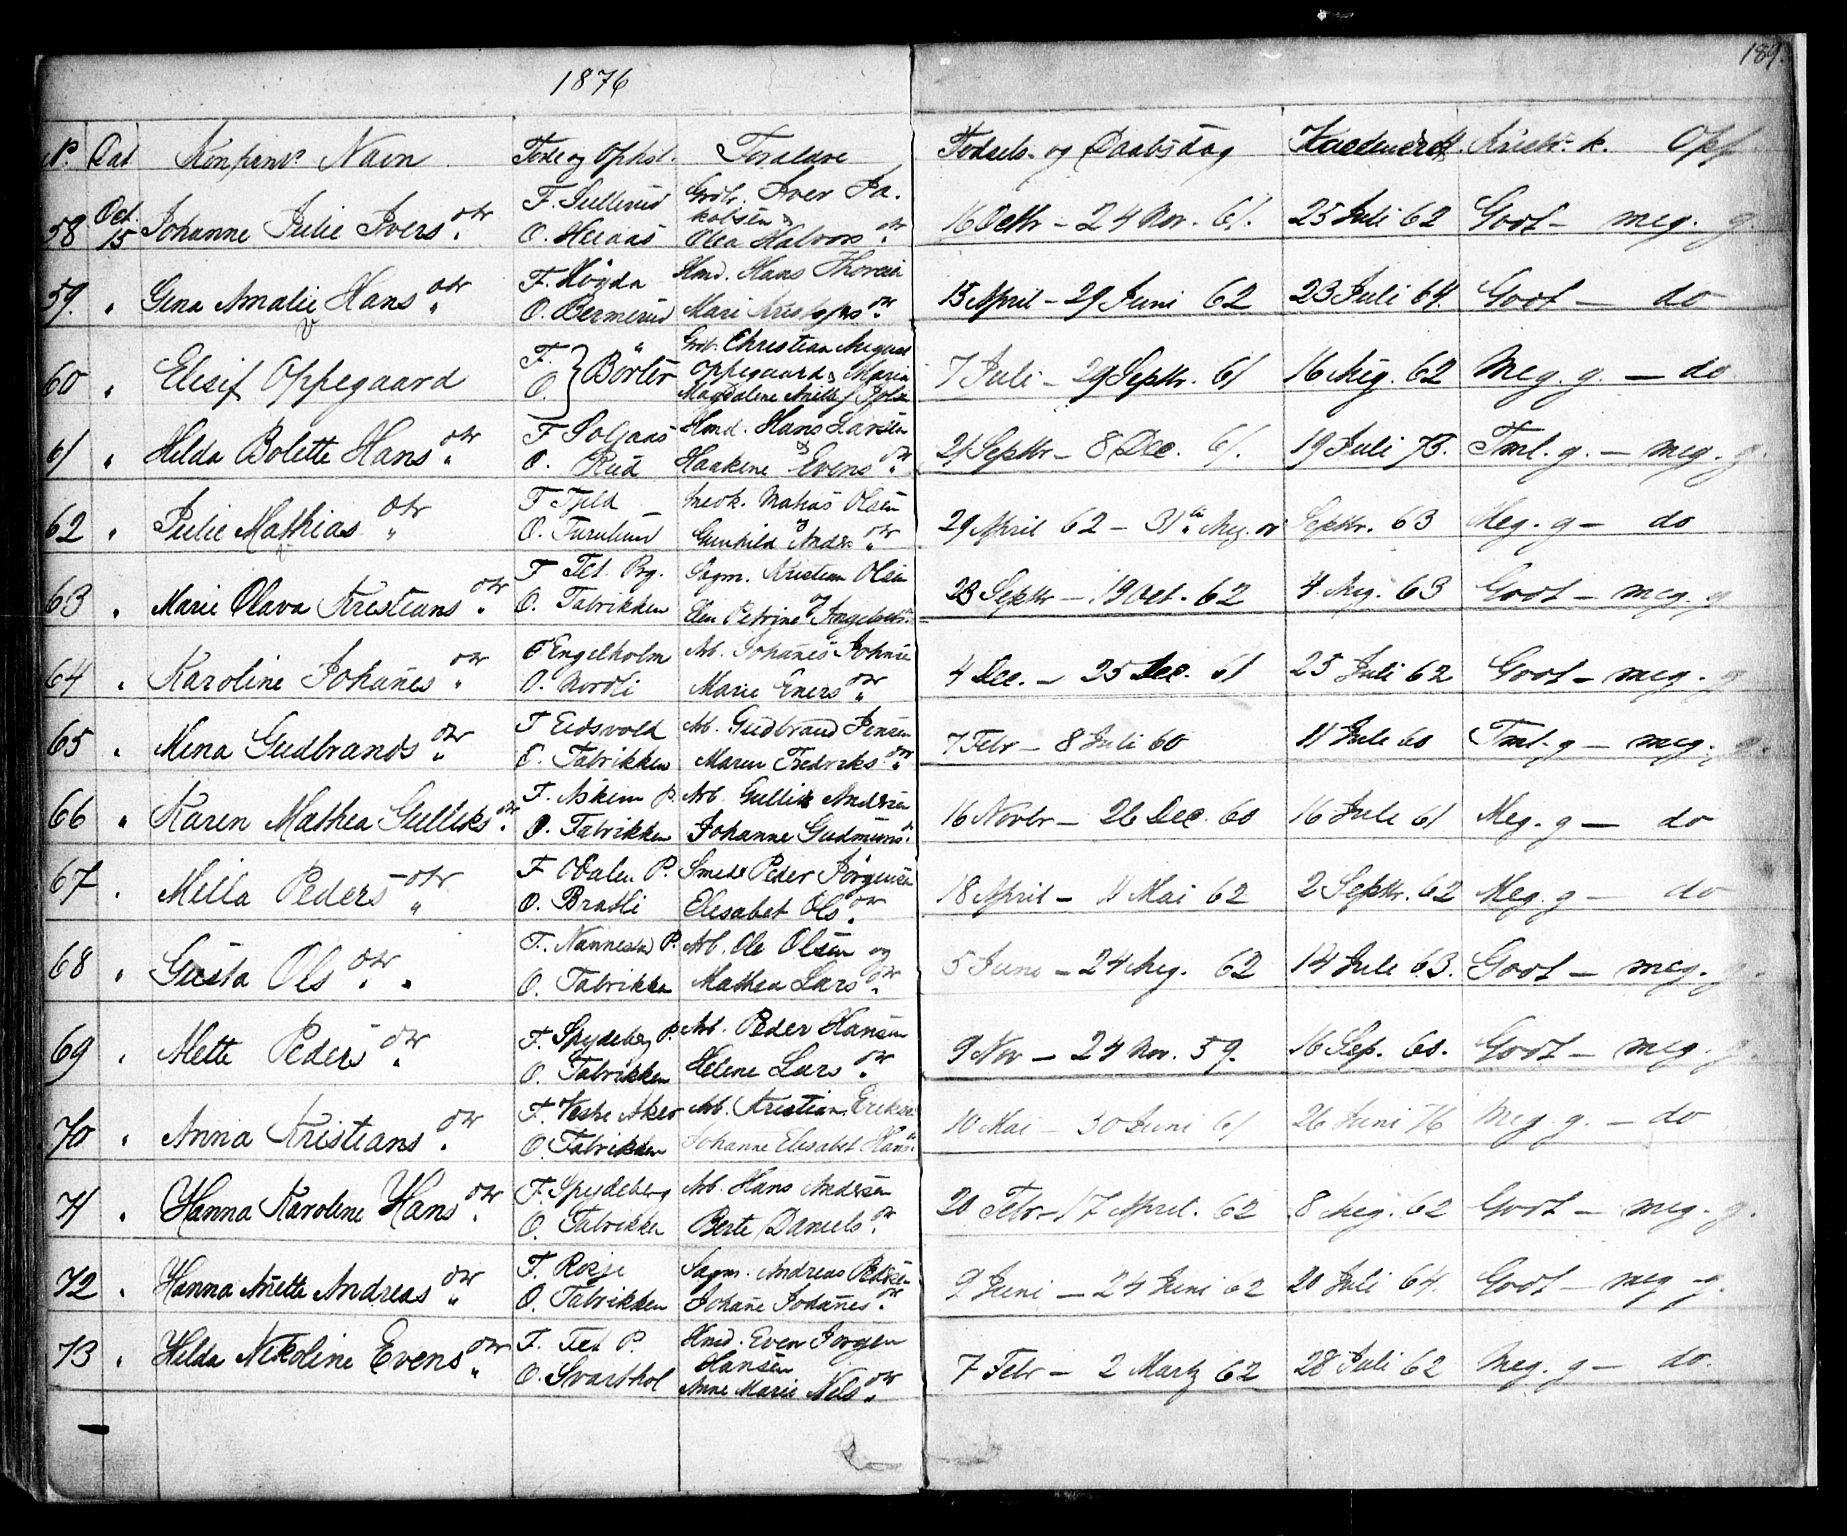 1876
189.
N. Dat Konfirm. Navn Føde og Ophst. Forældre Fødsels- og Daabsdag Vaccineret Krist. k. Opf.
58 Oct. 15 Johanne Julie Ivers dtr. F. Gullerud O. Gdbr. Iver Jakobsen & Olea Halvors dtr. 16 Octbr - 24 Nov. 61. 25 Juli 62 Godt - meg. g.
59. " Gina Amalie Hans dtr. F. Høgda O. Bermerud Hmd. Hans Mari Kristofers dtr. 15 April - 29 Juni 62 23 Juli 64. Godt - do
60 " Elisif Oppegaard F. O. } Børter Gdbr. Christian August Oppegaard & Maria Magdalene 7 Juli - 29 Septbr. 61 16 Aug. 62 Meg. g. - do
61 " Hilda Bolette Hans dtr. F Solgaas O. Rud Hmd. Hans Larsen & Haakine Evens dtr. 21 Septbr - 8 Dec. 61. 19 Juli 73. Tml. g. - meg. g.
62 " Julie Mathias dtr. F O. Furulund Matias Olsen & Gunhild Anders dtr. 29 April 62 - 31te Aug. Septbr. 63 Meg. g - do
63 " Marie Olava Kristians dtr. F Fet Prg. O. Fabrikken Sagm. Kristian Olsen & Elen Petrine 28 Septbr - 19 Oct. 62 4 Aug. 63 Godt - meg. g
64 " Karoline Johanes dtr. F Engelholm O. Nordli Arb. Johanes Marie Eners dtr. 4 Dec. - 25 Dec. 61 25 Juli 62 Godt - meg. g
65 " Mina Gudbrands dtr. F Eidsvold O. Fabrikken Arb. Gudbrand Jensen Maren Fredriks dtr. 7 Febr - 8 Juli 60 11 Juli 60 Tml. g - meg. g.
66 " Karen Mathea Gulliks dtr. F. Askim P. O. Fabrikken Arb. Gullik Andersen Johanne Gudmunds d. 16 Novbr - 26 Dec. 60 16 Juli 61 Meg. g - do
67 " Milla Peders dtr. F P. O. Bratli Smed Peder Jørgensen Elisabet Ols dtr. 18 April - 11 Mai 62 2 Septbr. 62 Meg. g - do
68 " Gusta Ols dtr. F. Nannestad P. O. Fabrikken Arb. Ole Olsen og Mathea Lars dtr. 5 Juni - 24 Aug. 62 14 Juli 63. Godt - meg. g.
69 " Mette Peders dtr. F. Spydeberg P. O. Fabrikken Arb. Peder Hansen Helene Lars dtr. 9 Nov - 24 Nov. 59. 16 Sep. 60. Godt - meg. g.
70 " Anna Kristians dtr. F. Vestre Aker O. Fabrikken Arb. Kristian Eriksen Johanne Elisabet Hans d. 10 Mai - 30 Juni 61 26 Juni 76 Meg. g. - do
71 " Hanna Karoline Hans dtr. F. Spydeberg O. Fabrikken Arb. Hans Andersen Berte Daniels dtr. 20 Febr - 17 April. 62 8 Aug. 62 Godt - meg. g.
72 " Hanna Anette Andreas dtr. F. O. Fabrikken Sagm. Andreas Johane Johanes dtr. 9 Juni - 24 Juni 62 20 Juli 64. Godt - meg. g.
73 " Hilda Nikoline Evens dtr. F. Fet P. O. Svarthol Hmd. Even Jørgen Hansen Anne Marie Nils dtr. 7 Febr - 2 Marts 62 28 Juli 62 Meg. g - do.